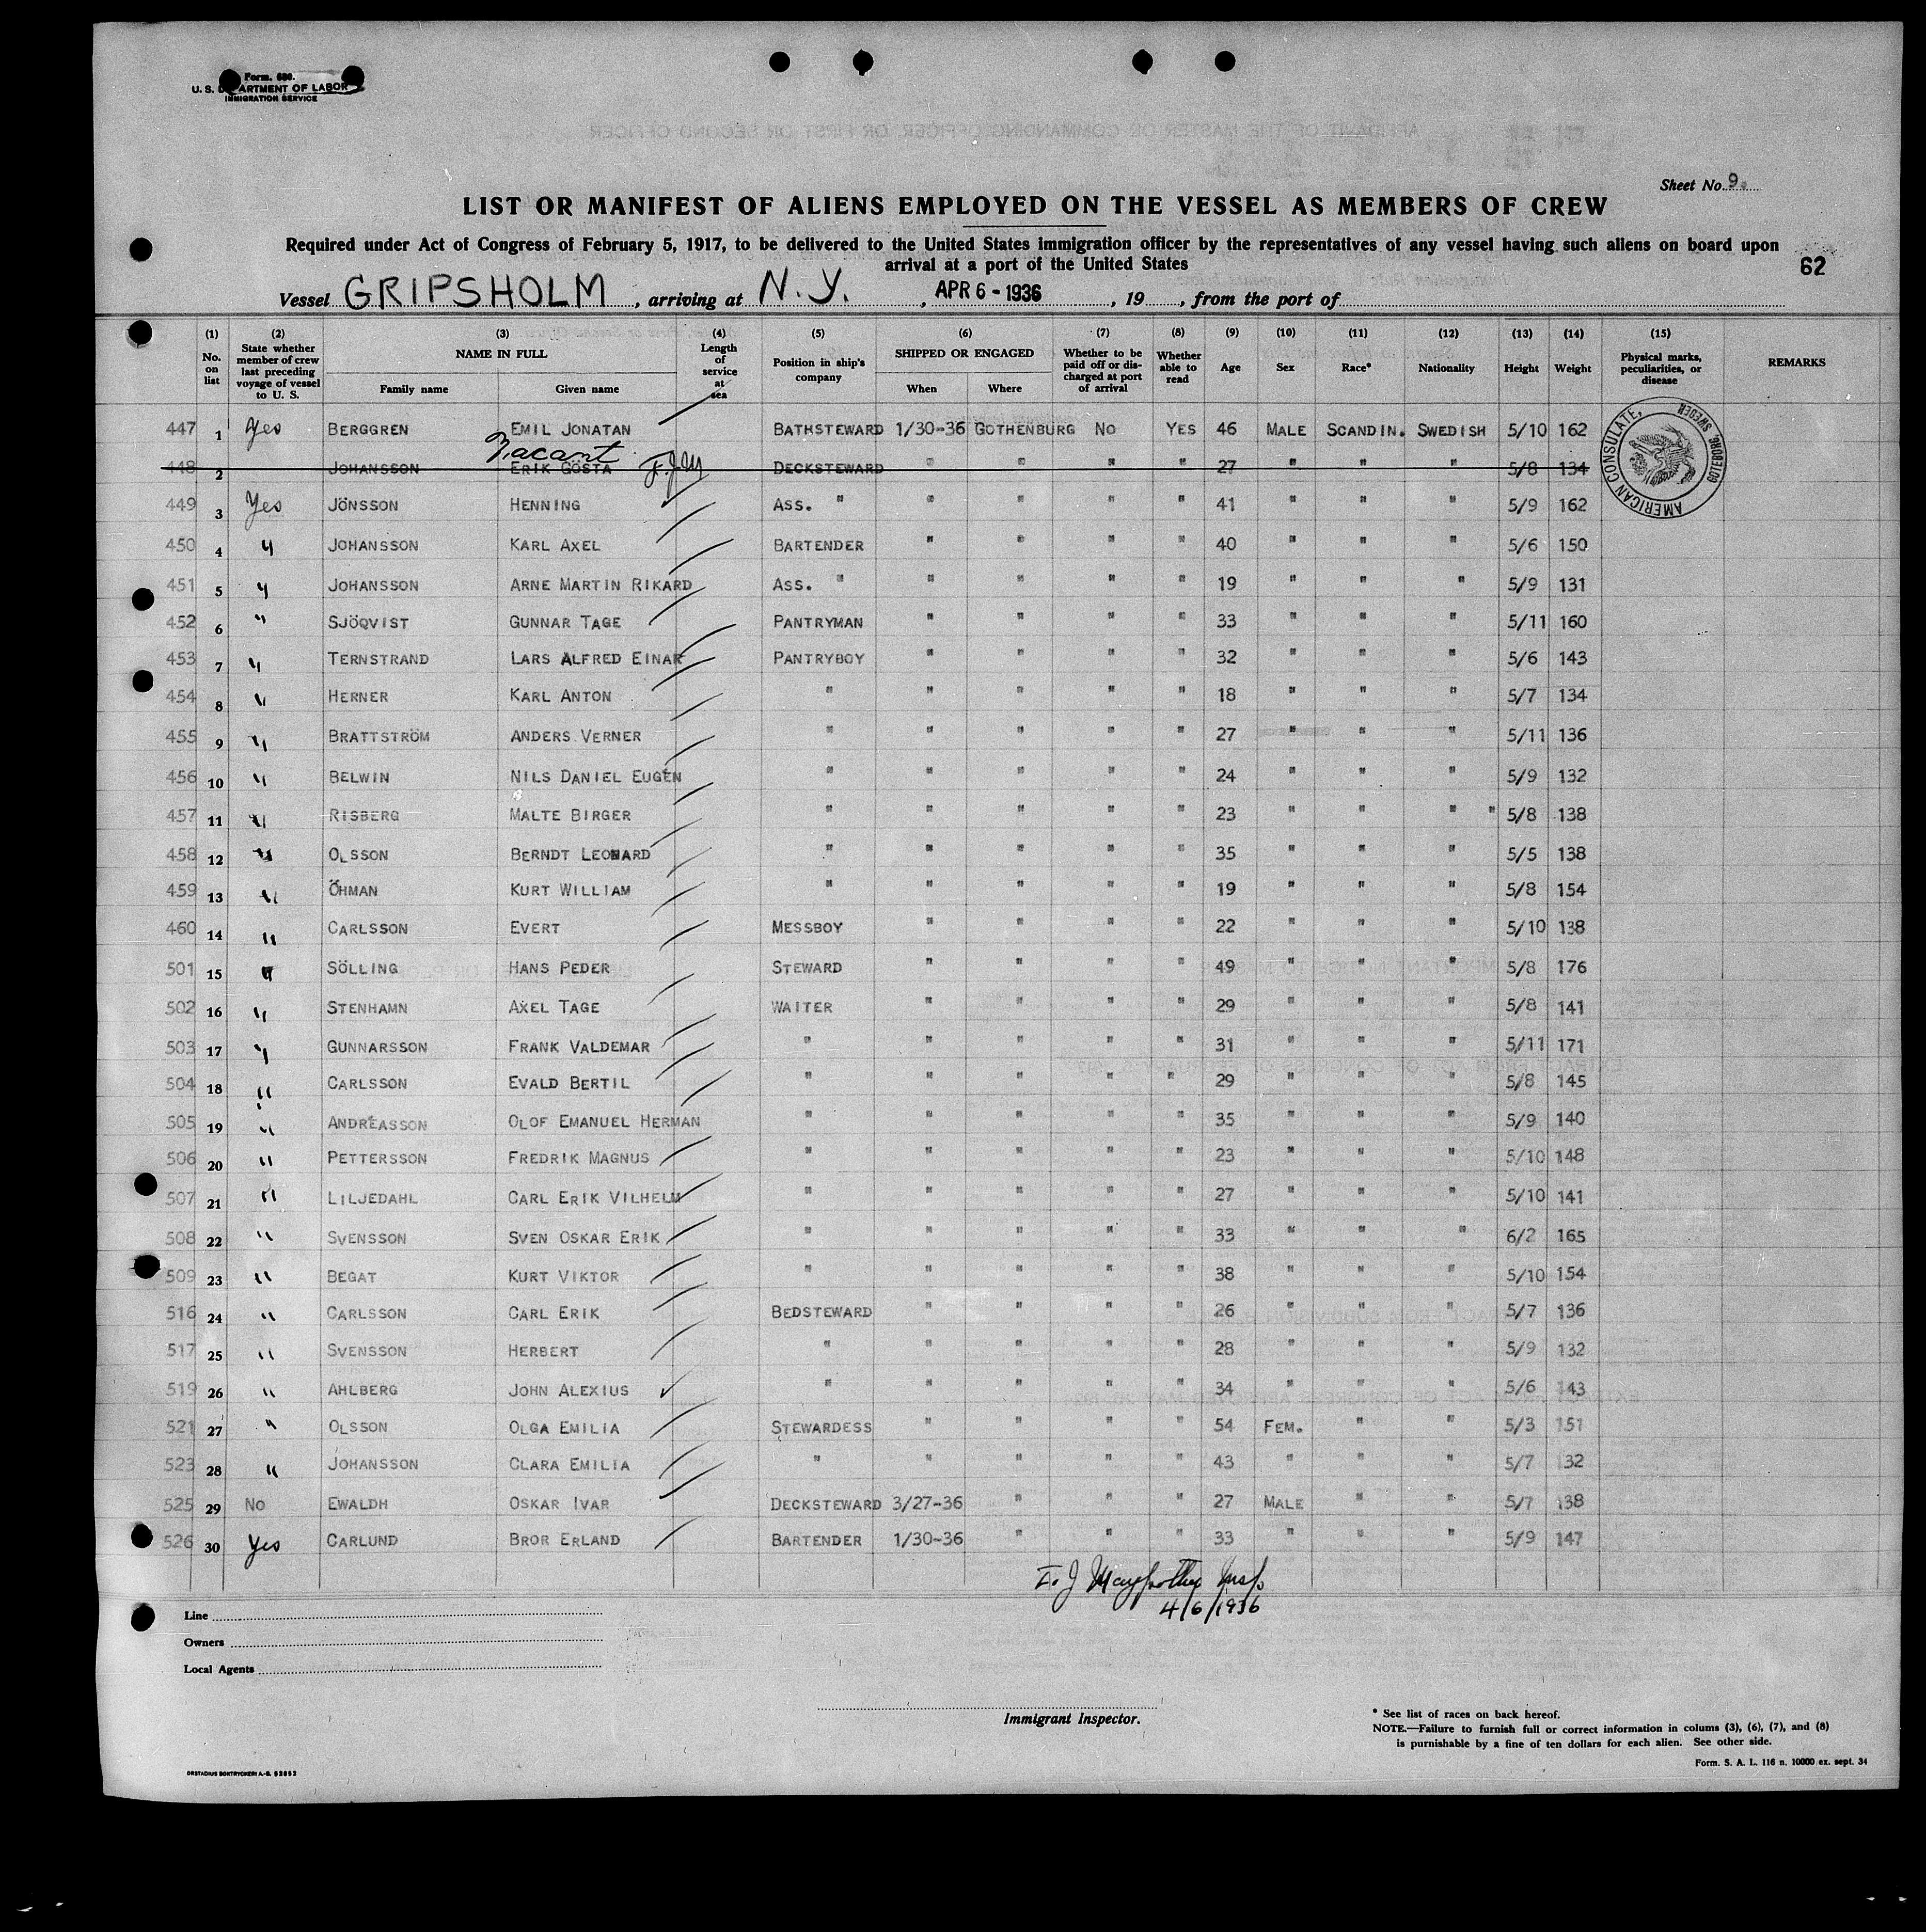 Form. 680.
U. S. DEPARTMENT OF LABOR
IMMIGRATION SERVICE
Sheet No. 9.
LIST OR MANIFEST OF ALIENS EMPLOYED ON THE VESSEL AS MEMBERS OF CREW
Required under Act of Congress of February 5, 1917, to be delivered to the United States immigration officer by the representatives of any vessel having such aliens on board upon
arrival at a port of the United States
62
Vessel GRIPSHOLM, arriving at N.Y., APR 6 - 1936, 19, from the port of
(1) (2) (3) (4) (5) (6) (7) (8) (9) (10) (11) (12) (13) (14) (15)
No. on list State whether member of crew last preceding voyage of vessel to U. S. NAME IN FULL Family name Given name Length of service at sea Position in ship's company SHIPPED OR ENGAGED When Where Whether to be paid off or discharged at port of arrival Whether able to read Age Sex Race* Nationality Height Weight Physical marks, peculiarities, or disease REMARKS
447 1 Yes BERGGREN EMIL JONATAN BATHSTEWARD 1/30-36 GOTHENBURG NO YES 46 MALE SCANDIN. SWEDISH 5/10 162
Vacant
448 2 JOHANSSON ERIK GÖSTA F.J.M DECKSTEWARD " " " " 27 " " " 5/8 134
AMERICAN CONSULATE, GOTEBORG, SWEDEN
449 3 Yes JÖNSSON HENNING ASS. " " " " " 41 " " " 5/9 162
450 4 " JOHANSSON KARL AXEL BARTENDER " " " " 40 " " " 5/6 150
451 5 " JOHANSSON ARNE MARTIN RIKARD ASS. " " " " " 19 " " " 5/9 131
452 6 " SJÖQVIST GUNNAR TAGE PANTRYMAN " " " " 33 " " " 5/11 160
453 7 " TERNSTRAND LARS ALFRED EINAR PANTRYBOY " " " " 32 " " " 5/6 143
454 8 " HERNER KARL ANTON " " " " " 18 " " " 5/7 134
455 9 " BRATTSTRÖM ANDERS VERNER " " " " " 27 " " " 5/11 136
456 10 " BELWIN NILS DANIEL EUGÉN " " " " " 24 " " " 5/9 132
457 11 " RISBERG MALTE BIRGER " " " " " 23 " " " " 5/8 138
458 12 " OLSSON BERNDT LEONARD " " " " " 35 " " " 5/5 138
459 13 " ÖHMAN KURT WILLIAM " " " " " 19 " " " 5/8 154
460 14 " CARLSSON EVERT MESSBOY " " " " 22 " " " 5/10 138
501 15 " SÖLLING HANS PEDER STEWARD " " " " 49 " " " 5/8 176
502 16 " STENHAMN AXEL TAGE WAITER " " " " 29 " " " 5/8 141
503 17 " GUNNARSSON FRANK VALDEMAR " " " " " 31 " " " 5/11 171
504 18 " CARLSSON EVALD BERTIL " " " " " 29 " " " 5/8 145
505 19 " ANDRÉASSON OLOF EMANUEL HERMAN " " " " " 35 " " " 5/9 140
506 20 " PETTERSSON FREDRIK MAGNUS " " " " " 23 " " " 5/10 148
507 21 " LILJEDAHL CARL ERIK VILHELM " " " " " 27 " " " 5/10 141
508 22 " SVENSSON SVEN OSKAR ERIK " " " " " 33 " " " 6/2 165
509 23 " BEGAT KURT VIKTOR " " " " " 38 " " " 5/10 154
516 24 " CARLSSON CARL ERIK BEDSTEWARD " " " " 26 " " " 5/7 136
517 25 " SVENSSON HERBERT " " " " " 28 " " " 5/9 132
519 26 " AHLBERG JOHN ALEXIUS " " " " " 34 " " " 5/6 143
521 27 " OLSSON OLGA EMILIA STEWARDESS " " " " 54 FEM. " " 5/3 151
523 28 " JOHANSSON CLARA EMILIA " " " " " 43 " " " 5/7 132
525 29 NO EWALDH OSKAR IVAR DECKSTEWARD 3/27-36 " " " 27 MALE " " 5/7 138
526 30 Yes CARLUND BROR ERLAND BARTENDER 1/30-36 " " " 33 " " " 5/9 147
Insp.
4/6/1936
Line
Owners
Local Agents
Immigrant Inspector.
* See list of races on back hereof.
NOTE.—Failure to furnish full or correct information in colums (3), (6), (7), and (8)
is purnishable by a fine of ten dollars for each alien. See other side.
Form. S. A. L. 116 n. 10000 ex. sept. 34
ORSTADIUS BOKTRYCKERI A.-B. 52852